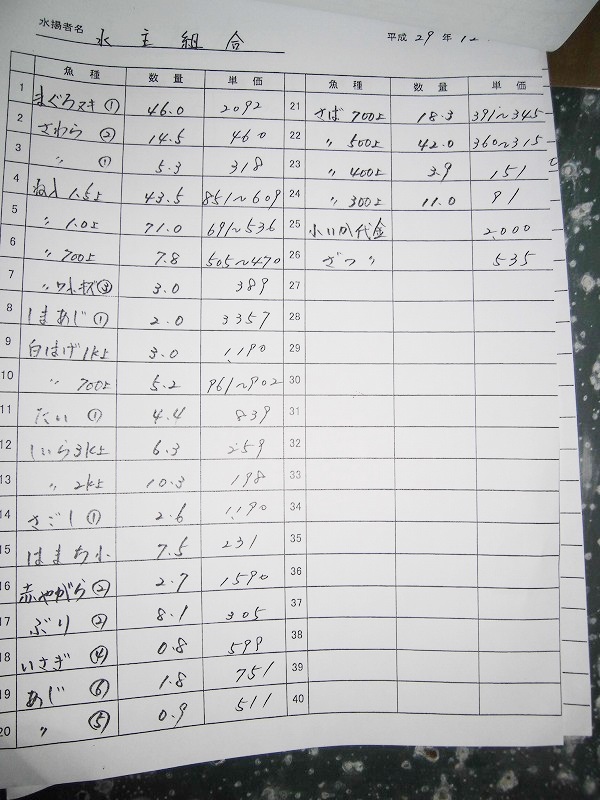 水揚者名 水主組合
平成 29 年 12
魚種 数量 単価
1 まぐろヌキ① 46.0 2092
2 さわら ② 14.5 460
3 〃 ① 5.3 318
4 1.5上 43.5 851〜609
5 〃 1.0上 71.0 691〜536
6 〃 700上 7.8 505〜470
7 〃 3.0 389
8 しまあじ① 2.0 3357
9 白はげ1k上 3.0 1190
10 〃 700上 5.2 961〜902
11 たい ① 4.4 839
12 しいら3k上 6.3 259
13 〃 2k上 10.3 198
14 さごし① 2.6 1190
15 はまち小 7.5 231
16 赤やがら② 2.7 1590
17 ぶり ② 8.1 305
18 いさぎ ④ 0.8 599
19 あじ ⑥ 1.8 751
20 〃 ⑤ 0.9 511
魚種 数量 単価
21 さば 700上 18.3 391〜345
22 〃 500上 42.0 360〜315
23 〃 400上 3.9 151
24 〃 300上 11.0 91
25 小いか代金 2,000
26 ざつ 〃 535
27
28
29
30
31
32
33
34
35
36
37
38
39
40